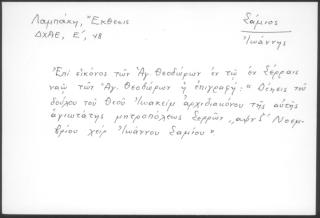 Λαμπάκη, Ἔκθεσις
ΔΧΑΕ, Ε΄, 48
Σάμιος
Ἰωάννης
Ἐπί εἰκόνος τῶν Ἁγ. Θεοδώρων ἐν τῷ ἐν Σέρραις
ναῷ τῶν Ἁγ. Θεοδώρων ἡ ἐπιγραφή: "Δέησις τοῦ
δούλου τοῦ Θεοῦ Ἰωακείμ ἀρχιδιακόνου τῆς αὐτῆς
ἁγιωτάτης μητροπόλεως Σερρῶν Νοεμ-
βρίου χείρ Ἰωάννου Σαμίου"